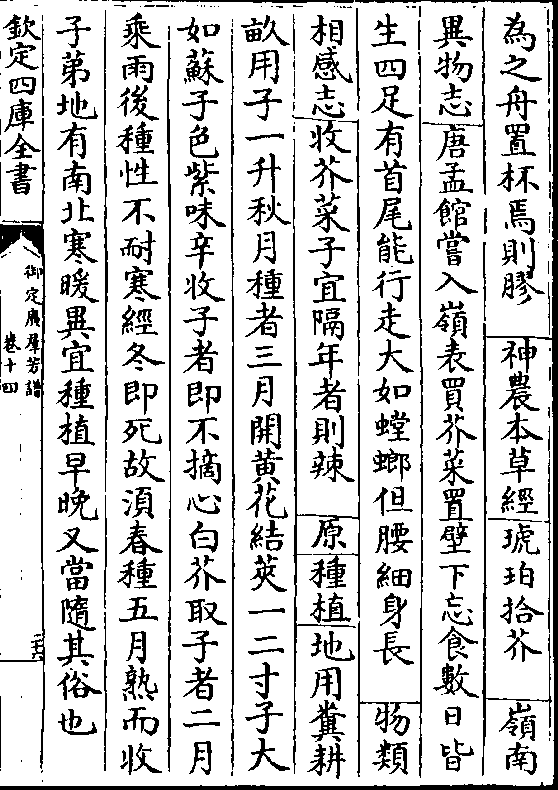 為之舟置杯焉則膠　神農本草經　琥珀拾芥　嶺南
異物志　唐孟館嘗入嶺表買芥菜置壁下忘食數日皆
生四足有首尾能行走大如螳螂但腰細身長　物類
相感志　收芥菜子宜隔年者則辣　原　種植　地用糞耕
畝用子一升秋月種者三月開黄花結莢一二寸子大
如蘇子色紫味辛收子者即不摘心白芥取子者二月
乘雨後種性不耐寒經冬即死故湏春種五月熟而收
子苐地有南北寒暖異宜種植早晚又當隨其俗也
欽定四庫全書
御定廣羣芳譜
卷十四